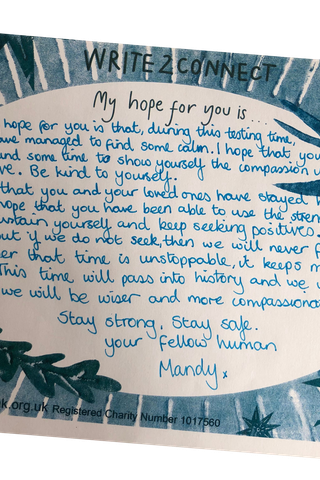 WRITE 2 CONNECT
My hope for you is...
hope for you is that, during this testing time,
managed to find some calm. I hope that you
some time to show yourself the compassion
Be kind to yourself.
that you and your loved ones have stayed
hope that you have been able to use the
yourself and keep seeking positives.
if we do not seek, then we will never
that time is unstoppable, it keeps
This time will pass into history and we
we will be wiser and more
Stay strong. Stay safe.
your fellow human
Mandy x
.org.uk Registered Charity Number 1017560